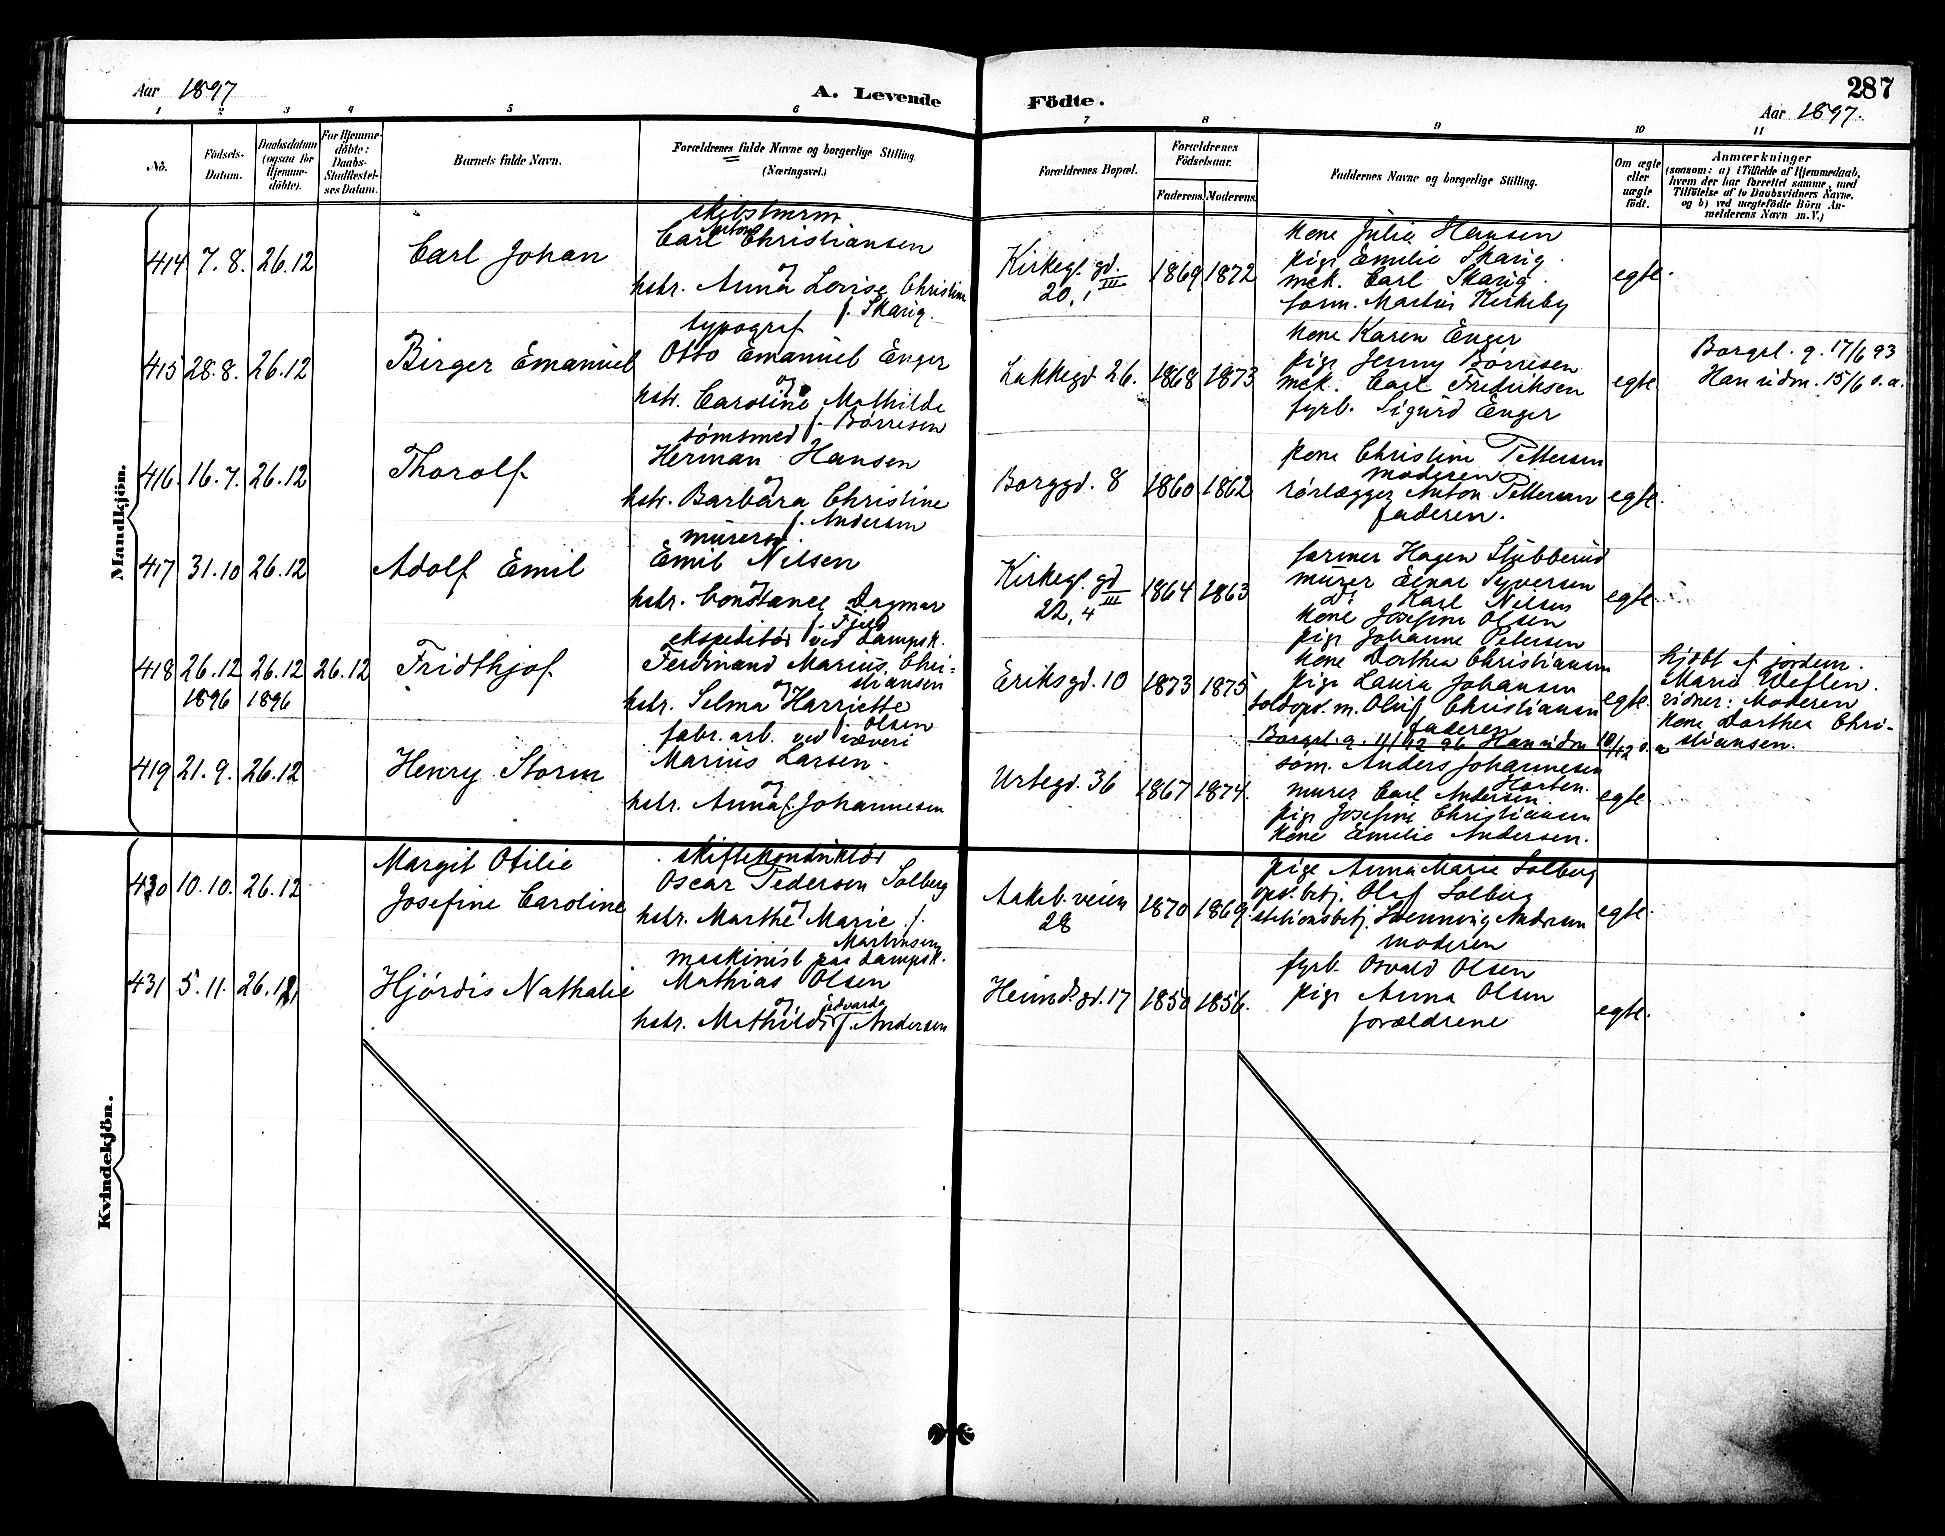 Aar 1897
A. Levende
Födte.
287
Aar 1897.
1 2 3 4 5 6 7 8 9 10 11
No.
Födsels-
Datum.
Daabsdatum
(ogsaa for
Hjemme-
døbte).
For Hjemme-
døbte:
Daabs-
Stadfæstel-
ses Datum.
Barnets fulde Navn.
Forældrenes fulde Navne og borgerlige Stilling.
(Næringsvei.)
Forældrenes Bopæl.
Forældrenes
Fødselsaar.
Faderens. Moderens.
Faddernes Navne og borgerlige Stilling.
Om ægte
eller
uægte
født.
Anmærkninger
(saasom: a) i Tilfælde af Hjemmedaab,
hvem der har forrettet samme, med
Tilføielse af to Daabsvidners Navne.
og b) ved uegtefødte Börn An-
melderens Navn m. V.)
Mandkjön.
414 7.8. 26.12
Carl Johan
skibstmrm
Anton
Carl Christiansen
og
hstr. Anna Lovise Christine
f. Skarig.
Kirkegl. gd. III
20,1
1869 1872
kone Julie Hansen
pige Emilie Skarig.
mek. Carl Skarig.
form. Martin Kirkeby
egte.
415 28.8. 26.12
Birger Emanuel
typograf
Otto Emanuel Enger
og
hstr. Caroline Mathilde
f. Børresen
Lakkegd. 26.
1868 1873
kone Karen Enger
pige Jenny Børresen
mek. Carl Fredriksen
fyrb. Sigurd Enger
egte
Borgel. g. 17/6 93
Han udm. 15/6 s.a.
416. 16.7. 26.12
Thorolf
sømsmed
Herman Hansen
og
hstr. Barbara Christine
f. Andersen
Borggd. 8
1860 1862
kone Christine Pettersen
moderen
rørlægger Anton Pettersen
faderen.
egte.
417 31.10 26.12
Adolf Emil
murersv.
Emil Nilsen
og
hstr. Constance Dagmar
f. Fjeld
Kirkegl. gd III
22,4
1864 1863
farmer Hagen Stubberud
murer Einar Syversen
Do Karl Nilsen
kone Josefine Olsen
pige Johanne Petersen
egte.
418 26.12 26.12 26.12
1896 1896
Fridthjof
ekspeditør ved dampsk.
Ferdinand Marius Chri-
stiansen
og
hstr. Selma Harriette
f. Olsen
Eriksgd. 10
1873 1875
kone Dorthea Christiansen
pige Laura Johansen
toldopd. m. Oluf Christiansen
faderen
Borgel. g. 11/12 96 Han udm 10/12 s. a
egte.
hjdbt af jordem.
Marie Weflen.
vidner: Moderen
kone Dorthea Chri-
stiansen.
419 21.9. 26.12
Henry Storm
fabr. arb. ved væveri
Marius Larsen.
og
hstr. Anna f. Johannesen
Urtegd. 36
1867 1874.
søm. Anders Johannesen
Horten.
murer Carl Andersen.
pige Josefine Christiansen
kone Emilie Andersen.
egte
Kvindekjön.
430 10.10. 26.12
Margit Otilie
Josefine Caroline
skiftekonduktør
Oscar Pedersen Solberg
og
hstr. Marthe Marie f.
Martinsen
Aakeb. veien
28
1870 1869.
pige Anna Marie Solberg
opd. betj. Olaf Solberg
stationsbetj. Henning Andersen
moderen
egte.
431 5.11. 26.12
Hjørdis Nathalie
maskinist paa dampsk.
Mathias Olsen
og
Edvarda
hstr. Mathilde f. Andersen
Heimd. gd. 17
1850 1856.
fyrb. Osvald Olsen
pige Anna Olsen
forældrene
egte.